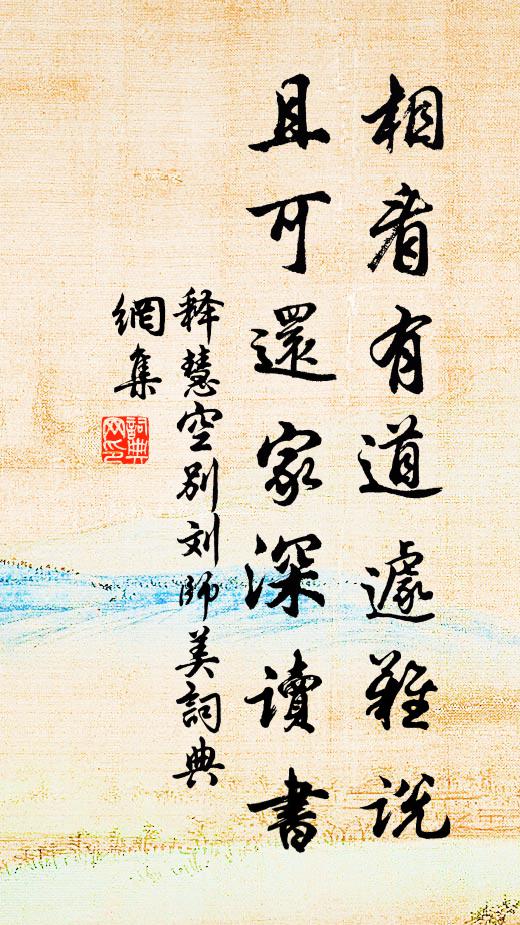 相看有道遽難説
且可還家深讀書
释慧空别刘師美詞典
網集
詞典
网印